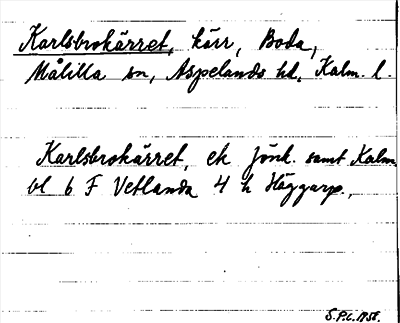 Karlsbrokärret, kärr, Boda,
Målilla sn, Aspelands hd, Kalm. l.
Karlsbrokärret, ek jönk. samt Kalm.
bl 6 F Vetlanda 4 h Häggarp.
S.P.C. 1958.